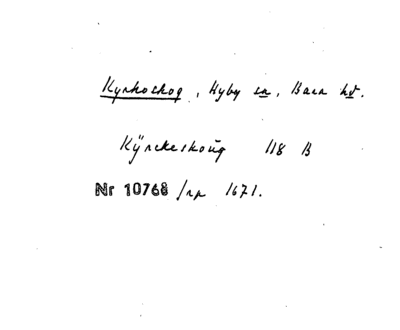 Kyrkoskog, Hyby sn, Bara hd.
Kÿrckeskoug 118 B
Nr 10768 /rp 1671.